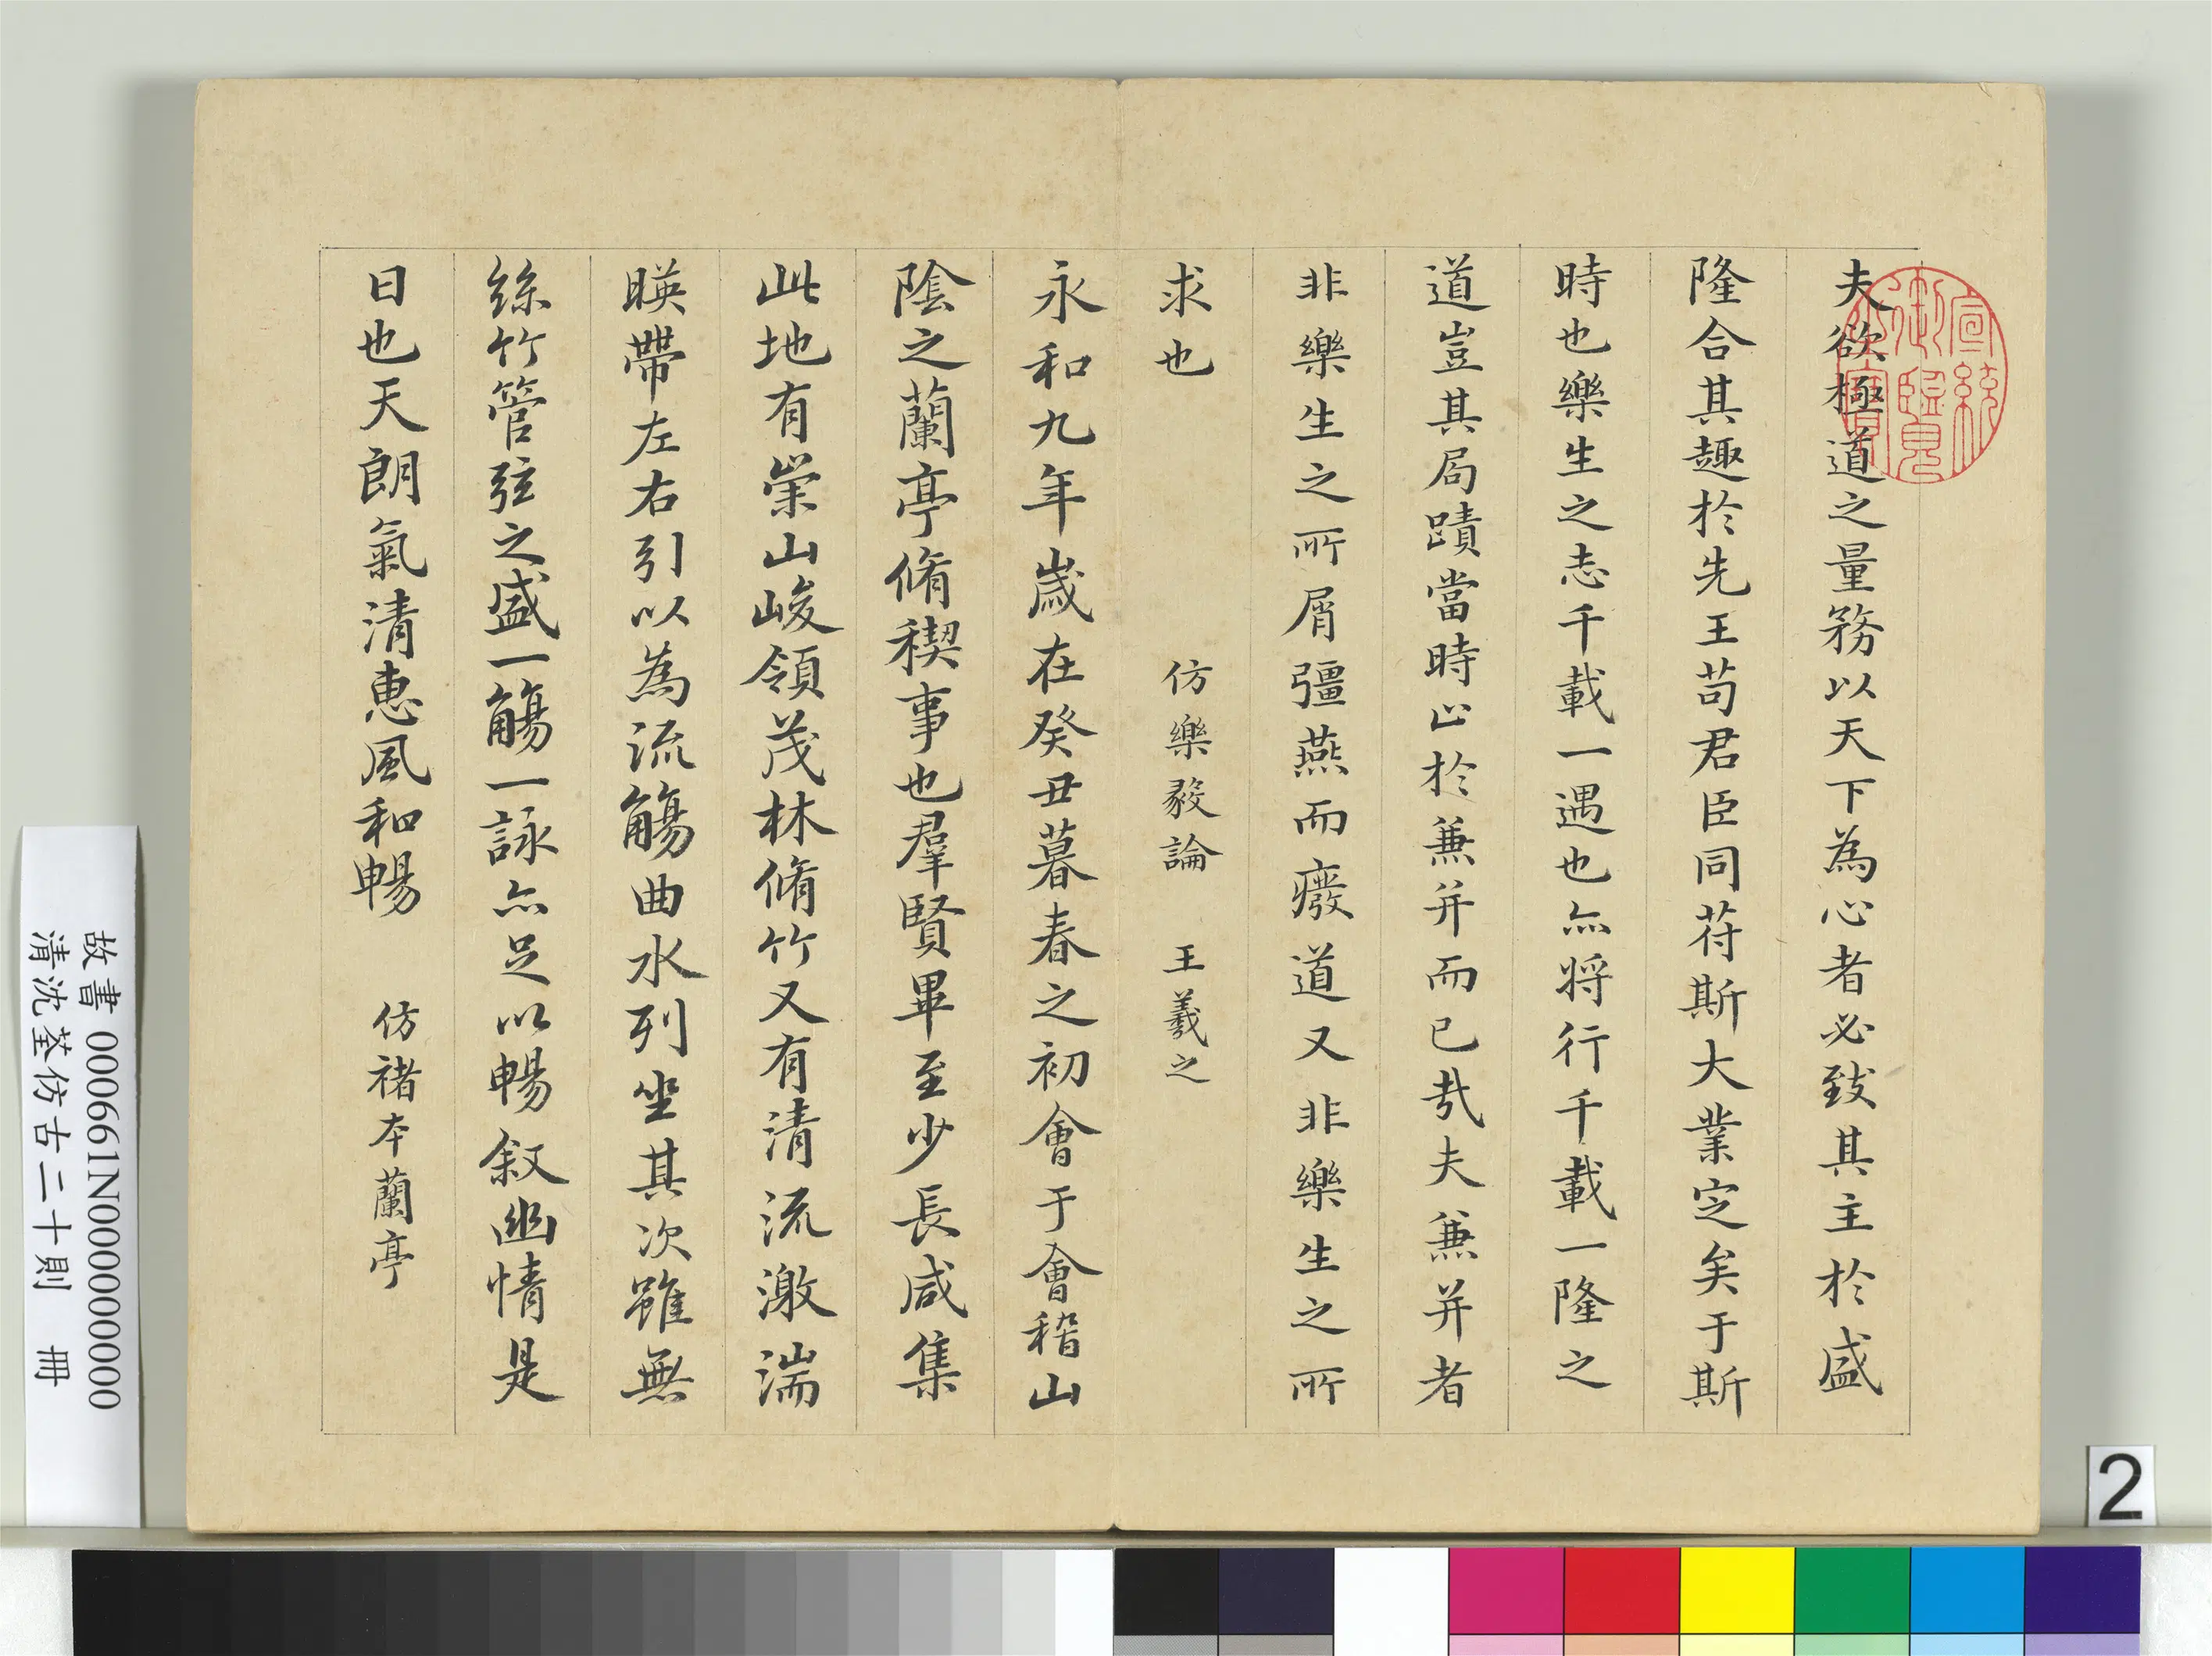 夫欲極道之量務以天下為心者必致其主於盛
隆合其趣於先王苟君臣同符斯大業定矣于斯
時也樂生之志千載一遇也亦將行千載一隆之
道豈其局蹟當時止於兼并而已哉夫兼并者
非樂生之所屑彊燕而廢道又非樂生之所
求也 仿樂毅論 王羲之
永和九年歲在癸丑暮春之初會于會稽山
陰之蘭亭脩禊事也羣賢畢至少長咸集
此地有崇山峻領茂林脩竹又有清流激湍
暎帶左右引以為流觴曲水列坐其次雖無
絲竹管弦之盛一觴一詠亦足以暢叙幽情是
日也天朗氣清惠風和暢 仿褚本蘭亭
宣統御覽之寶
故書 000661N000000000
清沈荃仿古二十則 冊
2